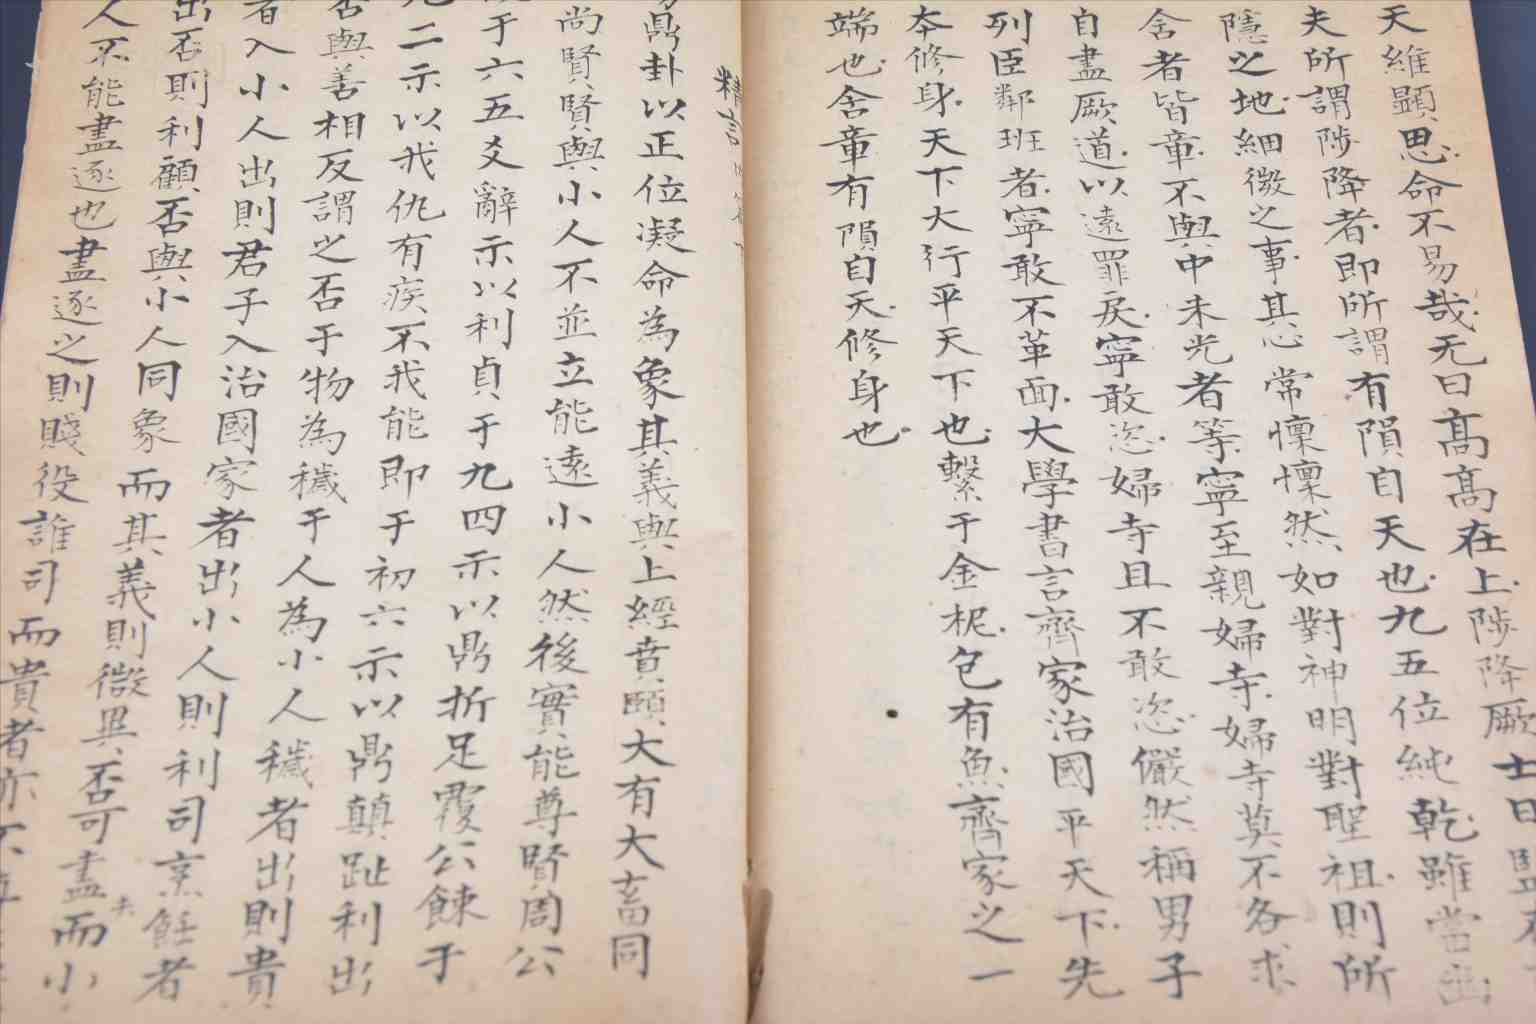 天維顯思命不易哉无曰高高在上陟降厥士日監在
夫所謂陟降者即所謂有隕自天也九五位純乾雖當出
隱之地細微之事其心常懍懍然如對神明對聖祖則所
舍者皆章不與中未光者等寧至親婦寺婦寺莫不各求
自盡厥道以遠罪戾寧敢恣婦寺且不敢恣儼然稱男子
列臣鄰班者寧敢不革面大學書言齊家治國平天下先
本修身天下大行平天下也繫于金柅包有魚齊家之一
端也舍章有隕自天修身也
精言
鼎卦以正位凝命為象其義與上經賁頤大有大畜同
尚賢賢與小人不並立能遠小人然後實能尊賢周公
于六五爻辭示以利貞于九四示以鼎折足覆公餗于
九二示以我仇有疾不我能即于初六示以鼎顛趾利出
否與善相反謂之否于物為穢于人為小人穢者出則貴
者入小人出則君子入治國家者出小人則利司烹飪者
出否則利顧否與小人同象而其義則微異否可盡而小
人不能盡逐也盡逐之則賤役誰司而貴者亦不